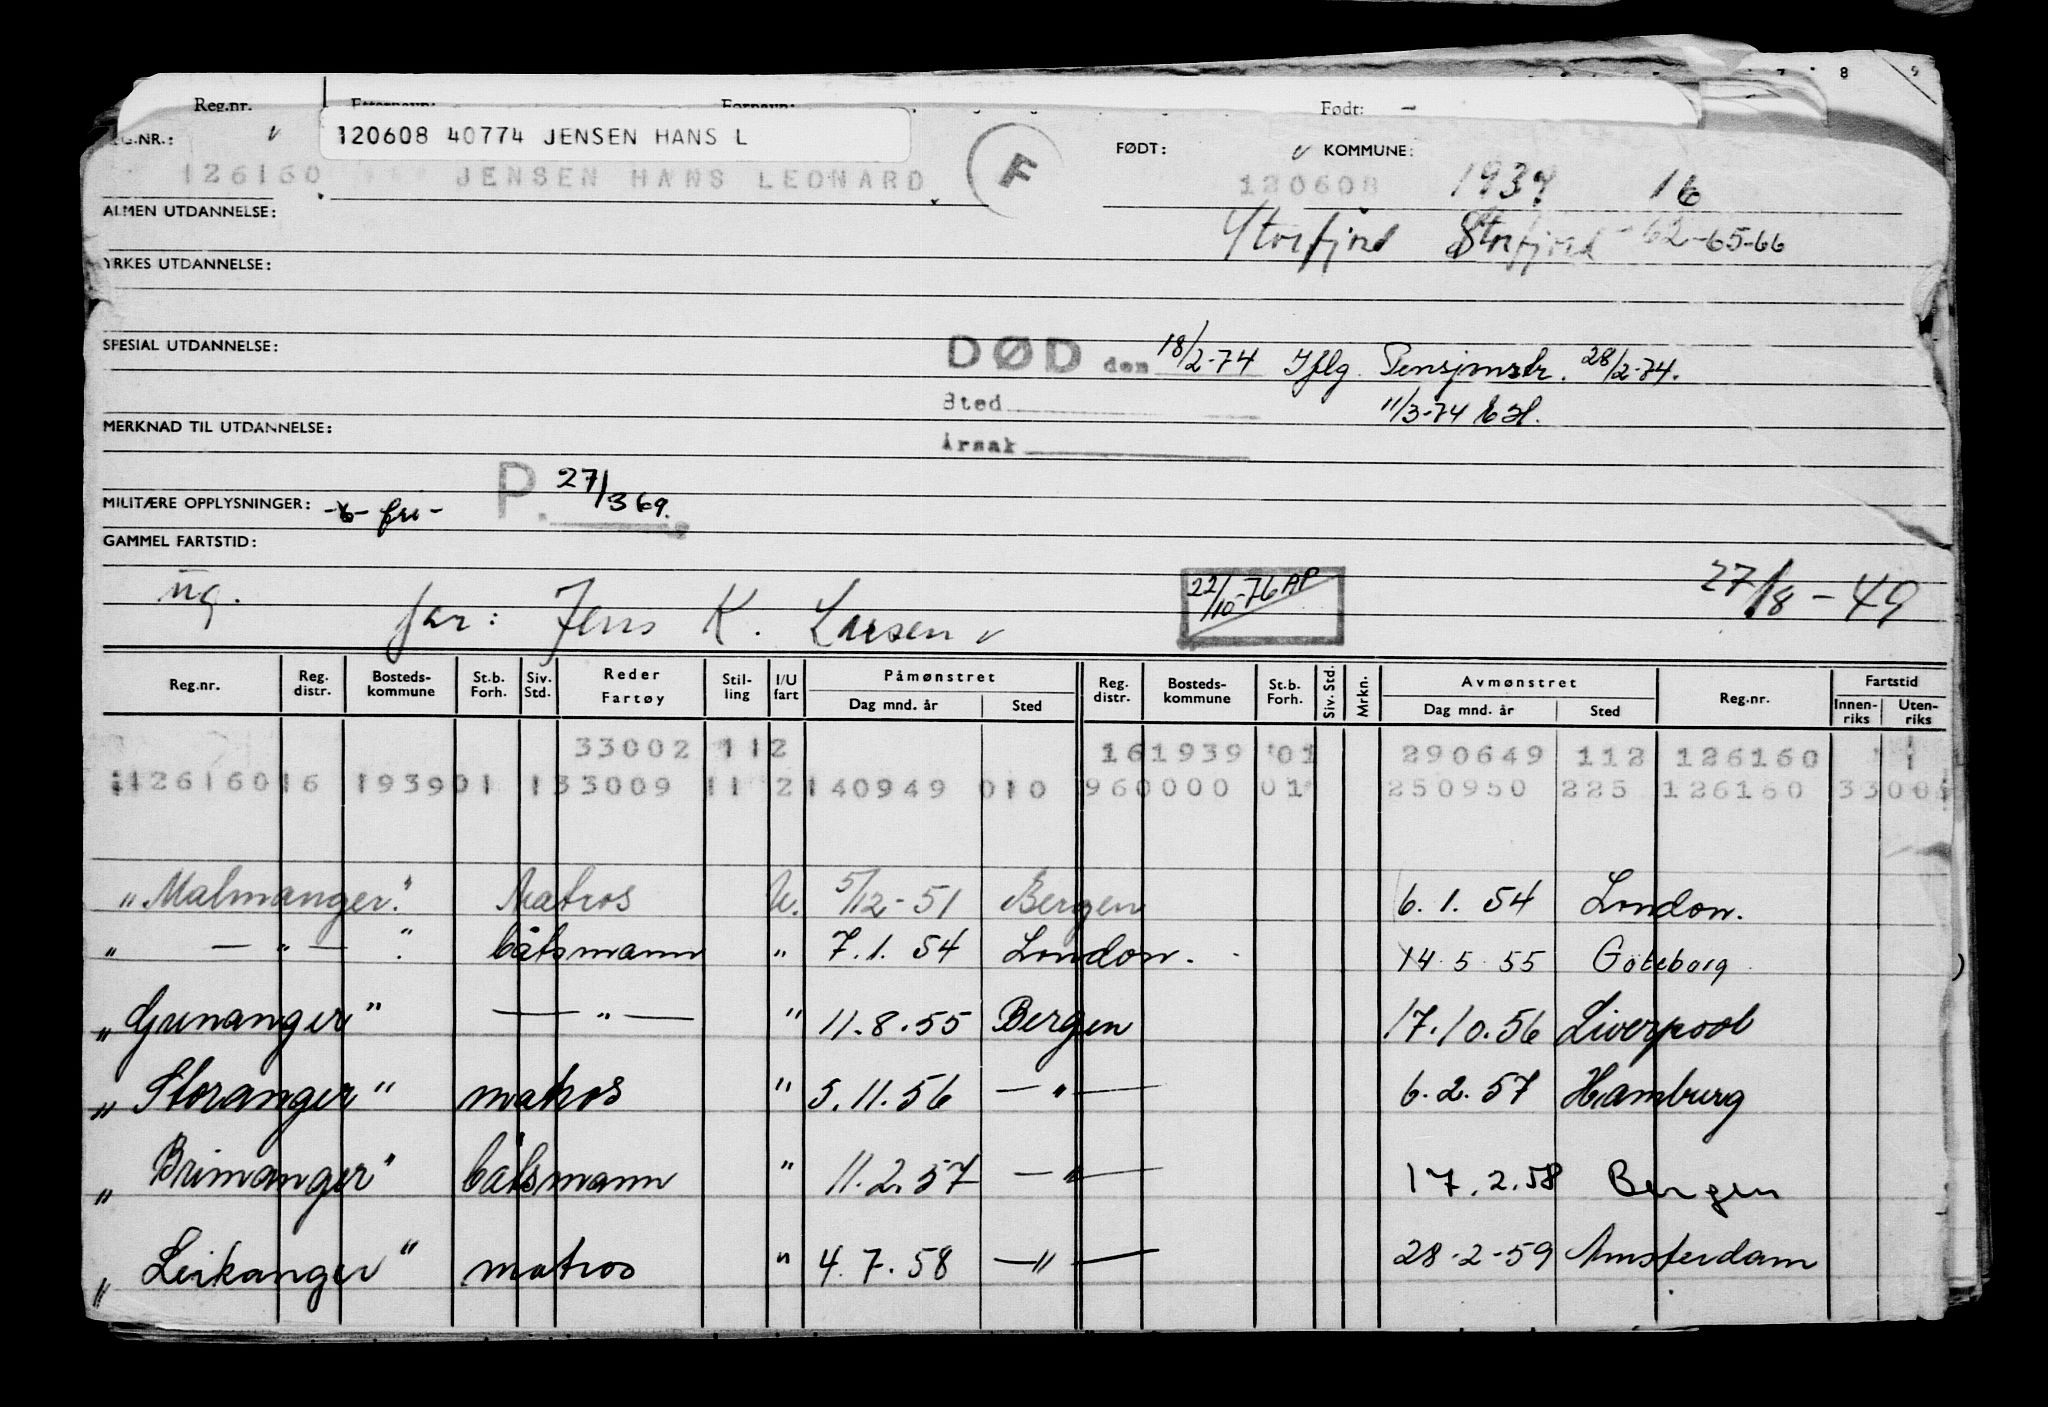 7 8 9
Reg.nr. Etternavn: Fornavn: Født: -
REG.NR.: v 120608 40774 JENSEN HANS L F FØDT: v KOMMUNE:
126160 JENSEN HANS LEONARD 120608 1939 16
ALMEN UTDANNELSE: Storfjord Storfjord - 62-65-66
YRKES UTDANNELSE:
SPESIAL UTDANNELSE: DØD den 18/2-74 Iflg. Pensjonstr. 28/2-74.
Sted 11/3-74 EH.
MERKNAD TIL UTDANNELSE: Årsak
MILITÆRE OPPLYSNINGER: fri - P. 27/3 69.
GAMMEL FARTSTID:
ug. far: Jens K. Larsen v 22/10-76 AP 27/8-49
Reg.nr. Reg. distr. Bosteds-kommune St.b. Forh. Siv. Std. Reder Fartøy Stil-ling I/U fart Påmønstret Dag mnd. år Sted Reg. distr. Bosteds-kommune St.b. Forh. Siv. Std. Mrkn. Avmønstret Dag mnd. år Sted Reg.nr. Fartstid Innen-riks Uten-riks
33002 112 161939 01 290649 112 126160
126160 16 1939 01 1 33009 11 2 140949 010 960000 01 250950 225 126160 33001
"Malmanger" Matros U. 5/12-51 Bergen 6.1.54 London.
" — " — " båtsmann " 7.1.54 London. 14.5.55 Göteborg.
"Grenanger" — " — " 11.8.55 Bergen 17.10.56 Liverpool
"Storanger" matros " 5.11.56 — " — 6.2.57 Hamburg
"Brimanger" båtsmann " 11.2.57 — " — 17.2.58 Bergen
"Leikanger" matros " 4.7.58 — " — 28-2-59 Amsterdam